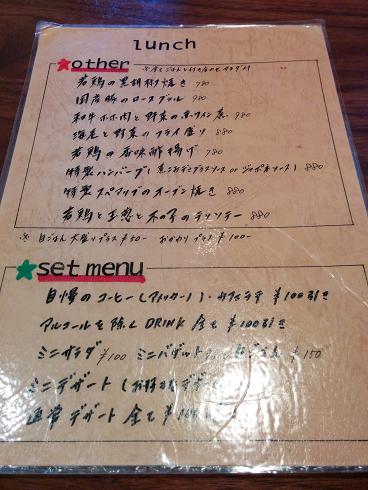 lunch
other
若鶏の黒胡椒焼き 780
国産豚のロースグリル 980
和牛ホホ肉と野菜の赤ワイン煮 980
海老と野菜のフライ盛り 980
若鶏の香味酢揚げ 780
特製ハンバーグ ソース or 880
特製スペアリブのオーブン焼き 880
若鶏と 木の子の 880
※ 白ごはん 大盛りプラス ¥50- おかわりプラス ¥100-
set menu
自慢のコーヒー ・カフェラテ ¥100引き
アルコールを除く DRINK 全て ¥100引き
ミニサラダ ¥100 ミニバゲット ¥150
ミニデザート
通常デザート 全て ¥100